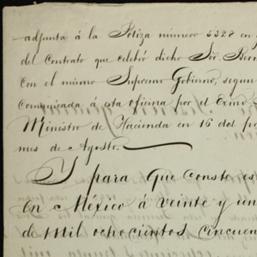 adjunta á la Póliza número 5328 en
del Contrato que celebró dicho Sor.
Con el mismo Supremo Gobierno, segun
Comunicada á esta oficina por el Exmo
Ministro de Hacienda en 16 del
mes de Agosto.
Y para que conste
en México á veinte y un
de mil ochocientos cincuen